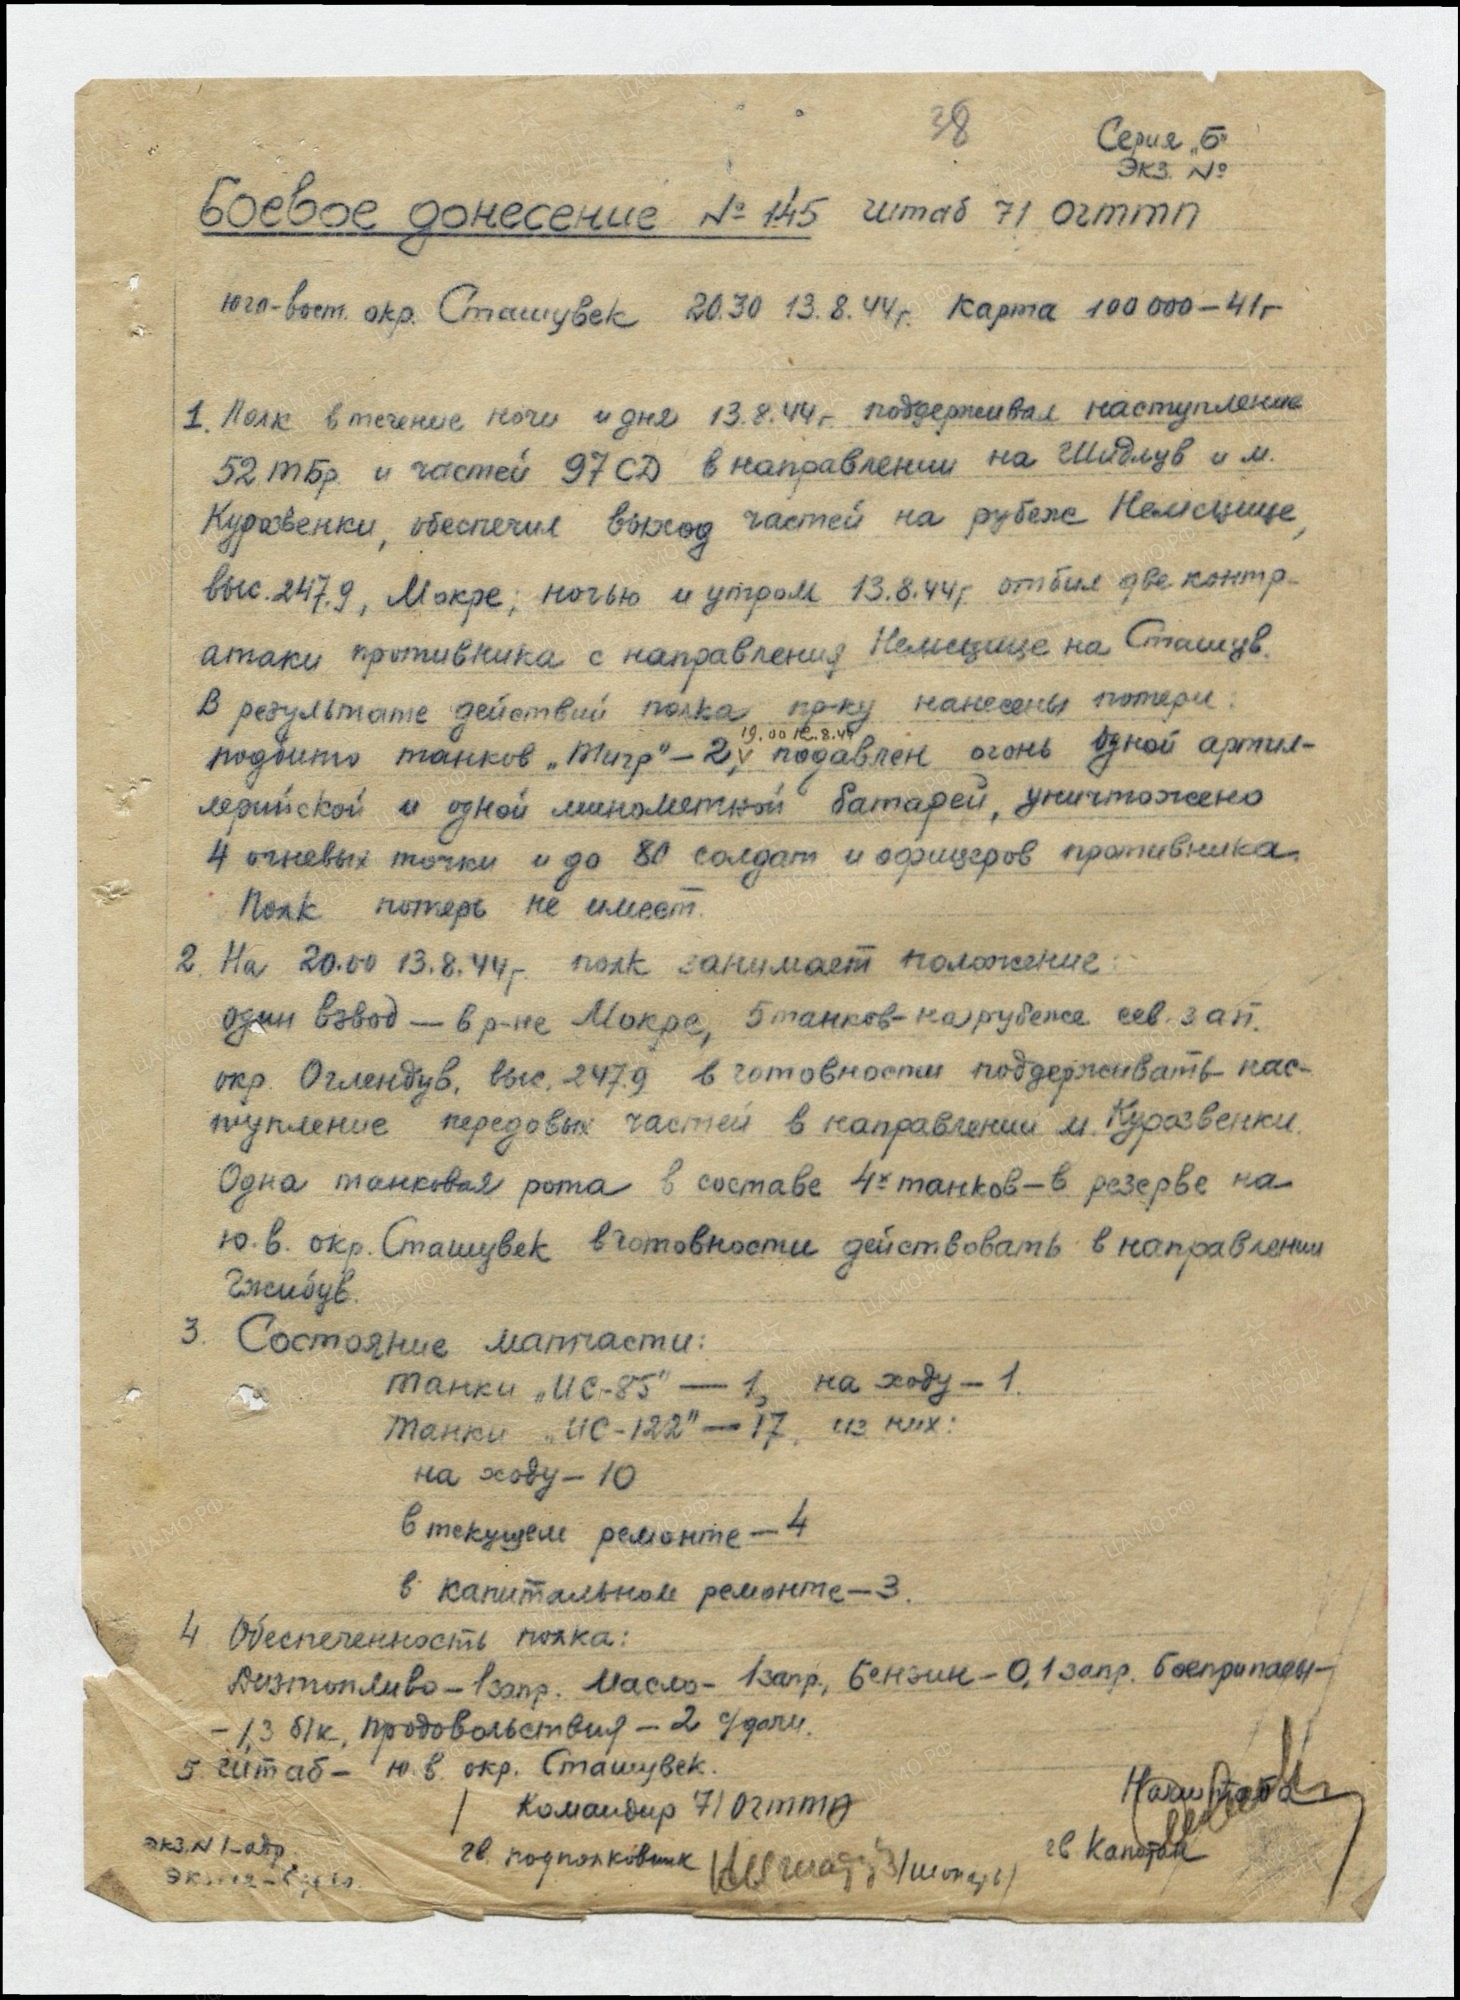 38
Серия „Б"
Экз. №
Боевое донесение № 145 Штаб 71 ОГТТП
юго-вост. окр. Сташувек 20.30 13.8.44г. Карта 100 000 – 41г
1. Полк в течение ночи и дня 13.8.44г. поддерживал наступление
52 ТБр. и частей 97 СД в направлении на Шидлув и м.
Курозвенки, обеспечил выход частей на рубеже Немсцице,
выс. 247.9, Мокре; ночью и утром 13.8.44г. отбил две контр-
атаки противника с направления Немсцице на Сташув.
В результате действий полка пр-ку нанесены потери:
19.00 12.8.44
подбито танков „Тигр" – 2, подавлен огонь одной артил-
лерийской и одной минометной батарей, уничтожено
4 огневых точки и до 80 солдат и офицеров противника.
Полк потерь не имеет.
2. На 20.00 13.8.44г. полк занимает положение:
один взвод – в р-не Мокре, 5 танков – на рубеже сев. зап.
окр. Оглендув, выс. 247.9 в готовности поддерживать нас-
тупление передовых частей в направлении м. Курозвенки.
Одна танковая рота в составе 4х танков – в резерве на
ю.в. окр. Сташувек в готовности действовать в направлении
Гжибув.
3. Состояние матчасти:
Танки „ИС-85" – 1, на ходу – 1.
Танки „ИС-122" – 17, из них:
на ходу – 10
в текущем ремонте – 4
в капитальном ремонте – 3.
4 Обеспеченность полка:
Дизтопливо – 1 запр. Масло – 1 запр., Бензин – 0,1 запр. Боеприпасы –
– 1,3 б/к, продовольствия – 2 с/дачи.
5. Штаб – ю.в. окр. Сташувек.
Командир 71 ОГТТП Нач. штаба
гв. подполковник гв капитан
Экз. N 1 – адр.